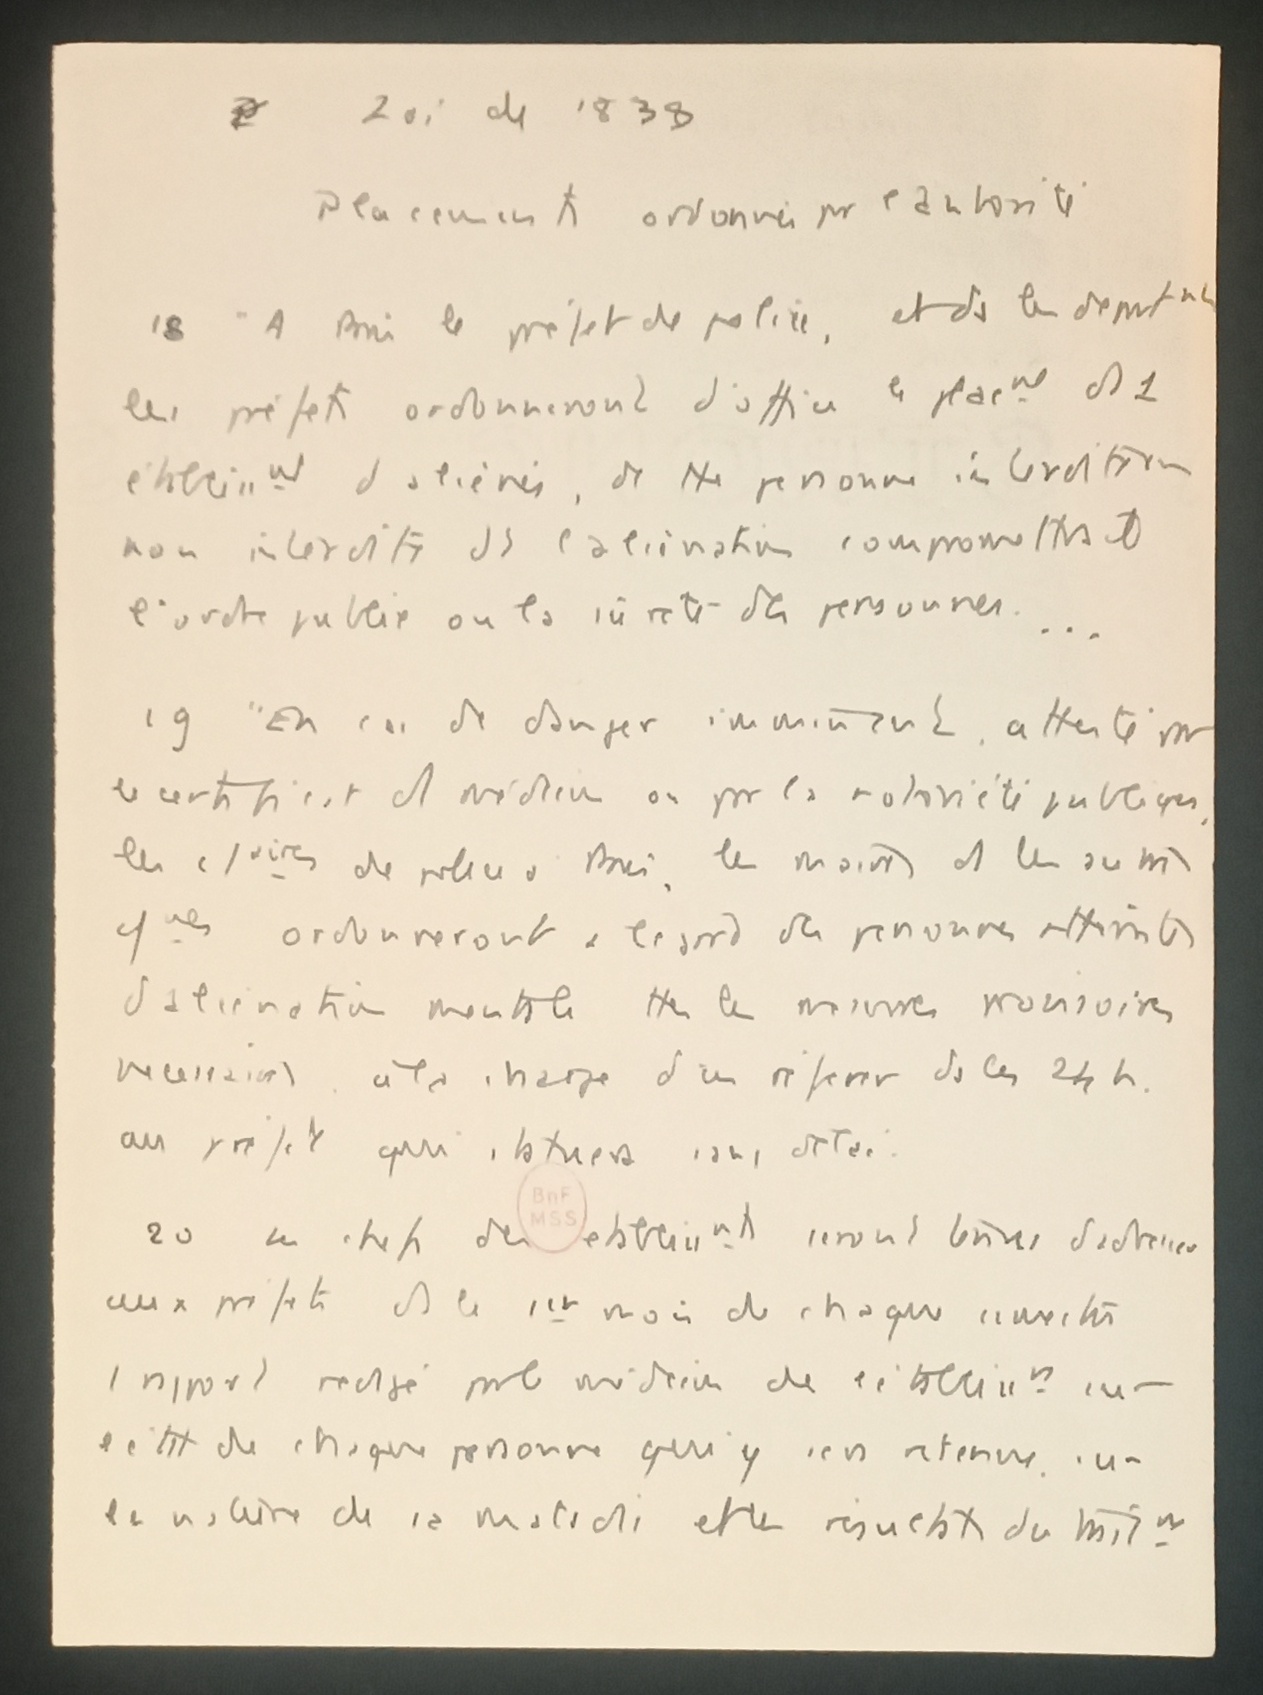 Loi de 1838
Placements ordonnés par l'autorité
18 "A Paris le préfet de police, et ds les départmts
les préfets ordonneront d'office le placmt ds 1
établissmt d'aliénés, de tte personne interdite ou
non interdite dt l'aliénation compromettrait
l'ordre public ou la sûreté des personnes. ...
19 "En cas de danger imminent, attesté par
le certificat d'1 médecin ou par la notoriété publique,
les c/aires de police à Paris, les maires ds les autres
c/nes ordonneront à l'égard des personnes atteintes
d'aliénation mentale ttes les mesures provisoires
nécessaires, à la charge d'en référer ds les 24 h.
au préfet qui statuera sans délai.
20 Les chefs des établissmnts seront tenus d'adresser
aux préfets ds le 1er mois de chaque semestre
1 rapport rédigé par le médecin de l'établissmt sur
l'état de chaque personne qui y sera retenue, sur
la nature de sa maladie et les résultats du traitmt
BnF
MSS